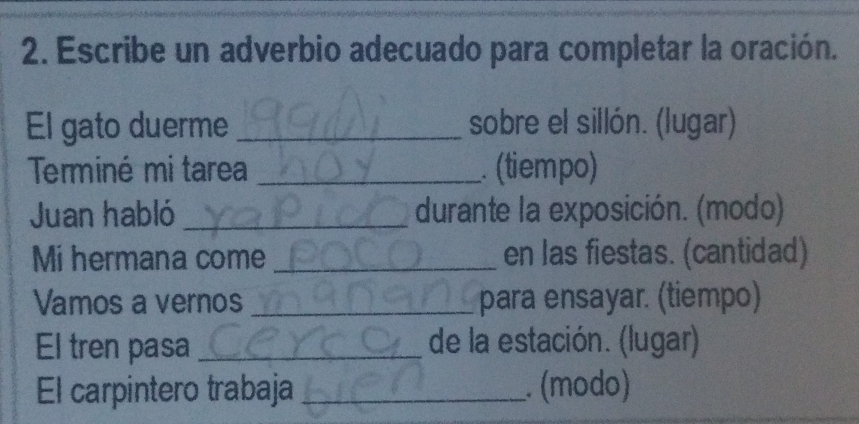 2. Escribe un adverbio adecuado para completar la oración.
El gato duerme ____________ sobre el sillón. (lugar)
Terminé mi tarea hoy. (tiempo)
Juan habló rapido durante la exposición. (modo)
Mi hermana come poco en las fiestas. (cantidad)
Vamos a vernos mañana para ensayar. (tiempo)
El tren pasa cerca de la estación. (lugar)
El carpintero trabaja bien. (modo)